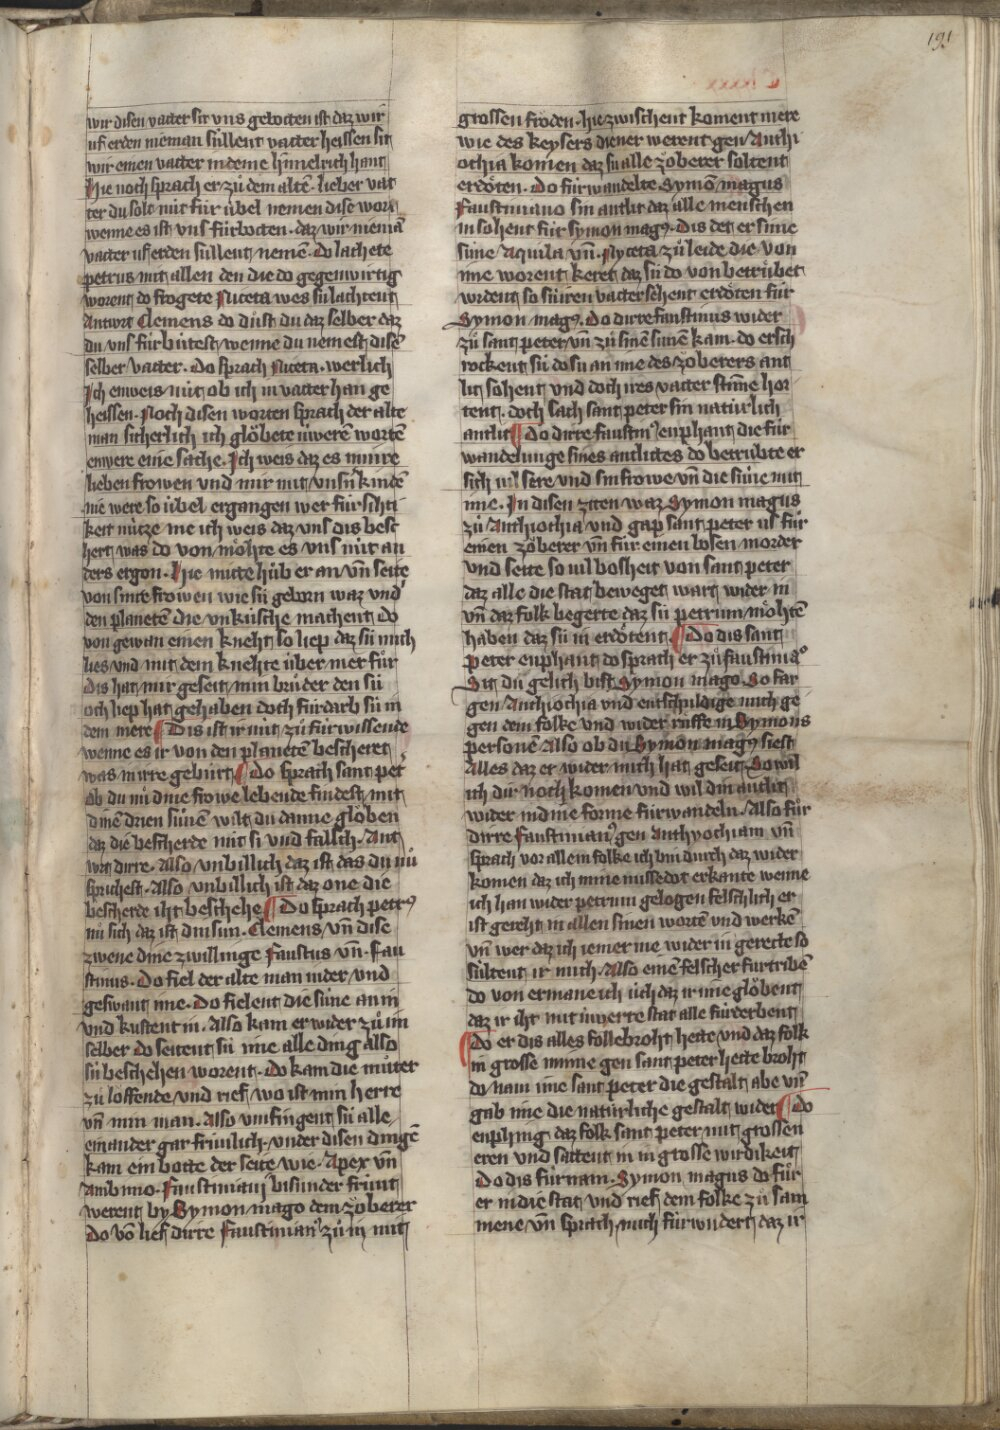 191
Clxxxx
wir disen vatter sit vns gebotten ist daz wir
uf erden nieman sullent vatter heissen sit
wir einen vatter in deme himelrich hant
Hie noch sprach er zů dem altē. lieber vat
ter du solt nüt für übel nemen dise wort
wenne es ist vns fürbotten. daz wir niemā
vatter uf erden süllent nemē. Do lachete
petrus mit allen den die do gegenwirtig
worent do frogete Niceta wes sü lachtent
Antwrt Clemens do dust du daz selber daz
du vns fürbütest, wenne du nemest disē
selber vatter. Do sprach Niceta. werlich
Ich enweis nüt ob ich in vatter han ge
heissen. Noch disen worten sprach der alte
man sicherlich ich glöbete üwerē wortē
enwere eine sache. Ich weis daz es minre
lieben frowen vnd mir mit vnsn̄ kindē
nie were so übel ergangen wer fürschti
keit nütze me ich weis daz vns dis besc
hert was do von möhte es vns nüt an
ders ergon. Hie mitte hůb er an vn̄ seite
von sinre frowen wie sü geborn waz vnd
den planetē die vnküsche machent do
von gewan einen kneht so liep daz sü mich
lies vnd mit dem knehte über mer für
Dis hat mir geseit min brůder den sü
och liep hat gehaben doch fürdarb sü in
dem mere ¶ Dis ist ir nüt zů fürwissende
wenne es ir von den planetē bescheret
was in irre gebürt ¶ Do sprach sant pet̄
ob du nů dine frowe lebende findest mit
dinē drien sünē wilt du danne glöben
daz die bescherde nüt si vnd falsch. Ant
wrt dirre. Also vnbillich daz ist das du nů
sprichest. Also vnbillich ist daz one die
bescherde iht beschehe ¶ Do sprach petrꝰ
nů sich daz ist din sun. Clemens vn̄ dise
zwene dine zwillinge Faustus vn̄. Fau
stinus. Do fiel der alte man nider vnd
geswant ime. Do fielent die süne an in
vnd kustent in. Also kam er wider zů im
selber do seitent sü ime alle ding also
sü beschehen worent. Do kam die můter
zů löffende vnd rief, wo ist min herre
vn̄ min man. Also vmfingent sü alle
einander gar früntlich. vnder disen dingē
kam ein botte der seite wie. Apex vn̄
Ambinio. Faustiniani bisunder frünt
werent by Symon mago dem zöberer
Do vō lief dirre Faustinianꝰ zů in mit
grossen fröden. hie zwischent koment mere
wie des keysers diener werent gen Anthi
ochia komen daz sü alle zöberer soltent
ertöten. Do fürwandelte Symō magus
Faustiniano sin antlit daz alle menschen
in sohent für symon magꝰ. Dis det er sime
süne Aquila vn̄. Nyceta zů leide die von
ime worent keret daz sü do von betrübet
wrdent so sü iren vatter sehent ertöten für
Symon magꝰ. Do dirre faustinus wider
zů sant peter vn̄ zů sinē sünē kam. do ersch
rockent sü do sü an ime des zöberers ant
lit sohent vnd doch ires vatter stim̄e hor
tent. doch sach sant peter sin natürlich
antlit ¶ Do dirre faustinꝰ enphant die für
wandelunge sines antlites do betrübte er
sich vil sere vnd sin frowe vn̄ die süne mit
ime. In disen ziten waz Symon magus
zů Anthiochia vnd gap sant peter us für
einen zöberer vn̄ für einen bosen morder
vnd seite so vil bosheit von sant peter
daz alle die stat beweget wart wider in
vn̄ daz folk begerte daz sü petrum möhtē
haben daz sü in ertötent ¶ Do dis sant
peter enphant do sprach er zů faustiniaͦ
Sit du gelich bist Symon mago. So far
gen Anthiochia vnd entschuldige mich ge
gen dem folke vnd wider rüffe in Symons
personē Also ob du Symon magꝰ siest
Alles daz er wider mich hat geseit So wil
ich dir noch komen vnd wil din antlit
wider in dine forme fürwandeln. Also für
dirre Faustinianꝰ gen Anthyochiam vn̄
sprach vor allem folke ich bin durch daz wider
komen daz ich mine missedot erkante wenne
ich han wider petrum gelogen felschlich er
ist gereht in allen sinen wortē vnd werkē
vn̄ wer daz ich iemer me wider in gerette so
sültent ir mich. Also einē felscher furtribē
do von ermane ich üch daz ir ime glöbent
daz ir iht mit üwerre stat alle fürderbent
¶ Do er dis alles follebroht hette vnd daz folk
in grosse minne gen sant peter hette broht
do nam ime sant peter die gestalt abe vn̄
gab ime die natürliche gestalt wider ¶ Do
enphing daz folk sant peter mit grossen
eren vnd sattent in in grosse wirdikeit
Do dis fürnam. Symon magus do für
er in die stat vnd rief dem folke zů sam
mene vn̄ sprach mich fürwndert daz ir